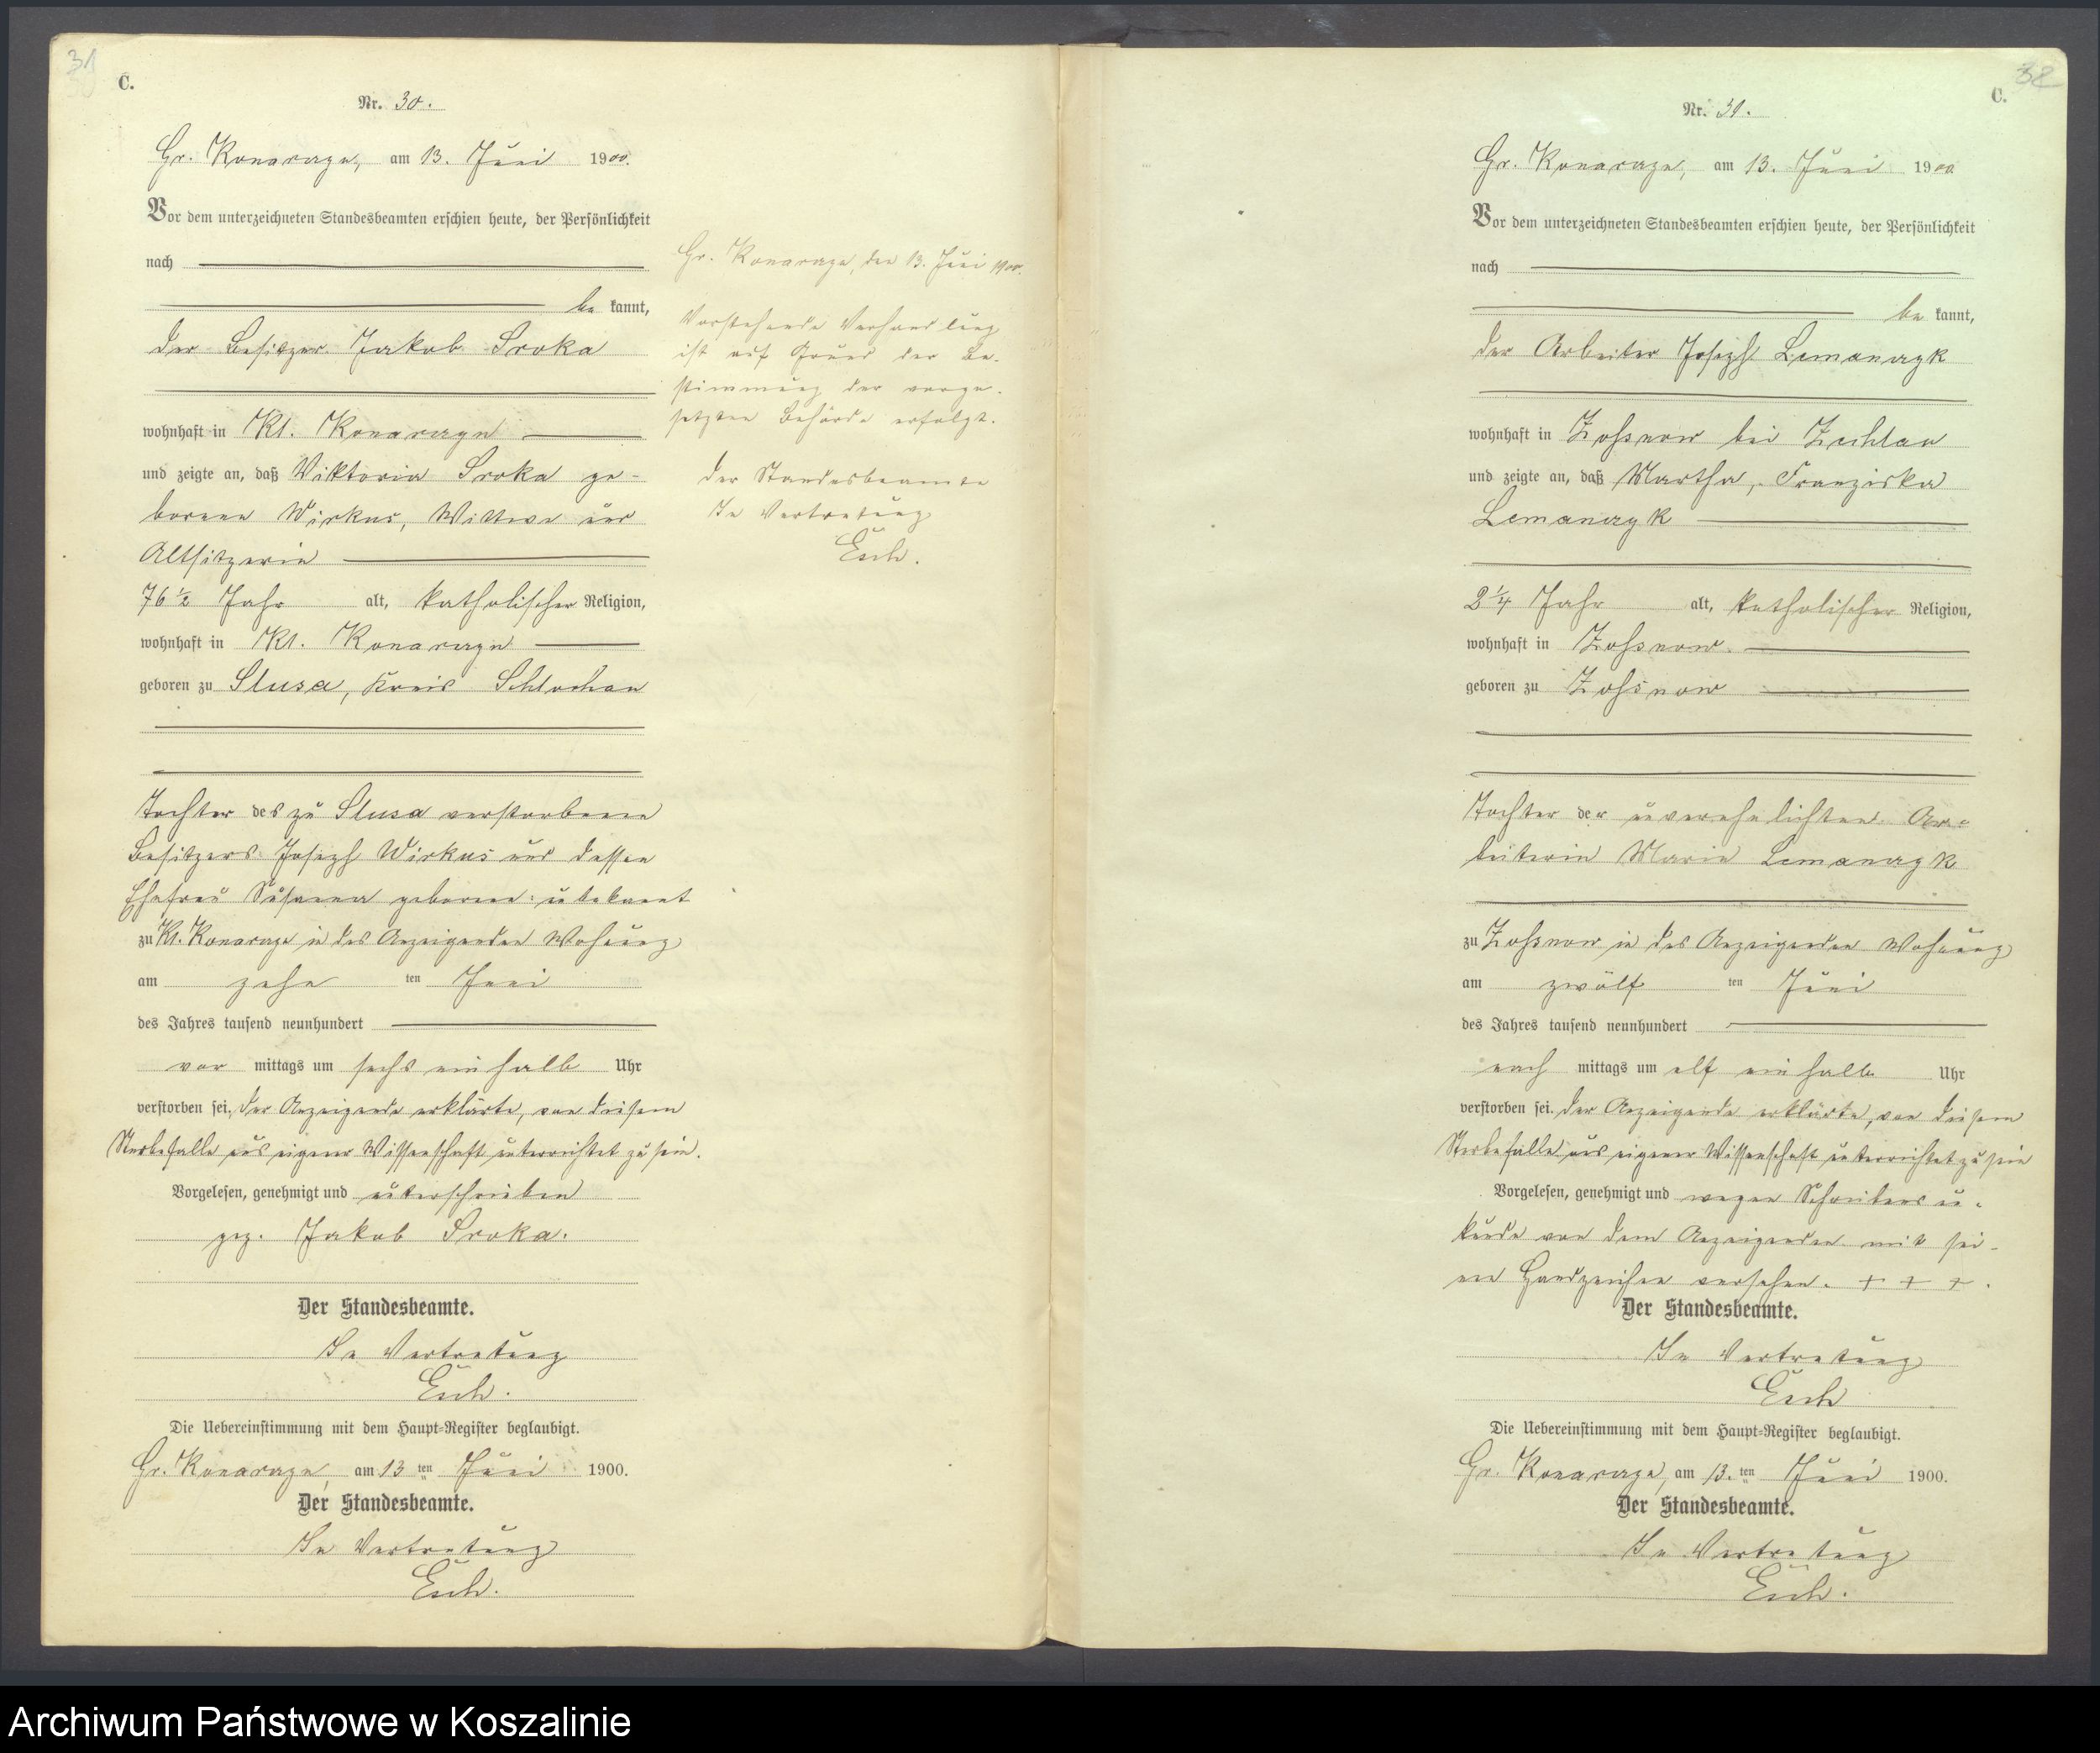 31
C.
Nr. 30.
Gr. Konarczyn, am 13. Juni 1900.
Vor dem unterzeichneten Standesbeamten erschien heute, der Persönlichkeit
nach
be kannt,
der Besitzer Jakob Sroka
wohnhaft in Kl. Konarczyn
und zeigte an, daß Viktoria Sroka ge-
borene Wirkus, Wittwe und
Altsitzerin
76 ½ Jahr alt, katholischer Religion,
wohnhaft in Kl. Konarczyn
geboren zu Slusa, Kreis Schlochau
Tochter des zu Slusa verstorbenen
Besitzers Joseph Wirkus und dessen
Ehefrau Susanna geborene: unbekannt
zu Kl. Konarczyn in des Anzeigenden Wohnung
am zehn ten Juni
des Jahres tausend neunhundert
vor mittags um sechs ein halb Uhr
verstorben sei. Der Anzeigende erklärte, von diesem
Sterbefalle aus eigener Wissenschaft unterrichtet zu sein.
Vorgelesen, genehmigt und unterschrieben
gez. Jakob Sroka.
Der Standesbeamte.
In Vertretung
Esch.
Die Uebereinstimmung mit dem Haupt-Register beglaubigt.
Gr. Konarczyn, am 13 ten Juni 1900.
Der Standesbeamte.
In Vertretung
Esch.
Gr. Konarczyn, den 13. Juni 1900.
Vorstehende Verhandlung
ist auf Grund der Be-
stimmung der vorge-
setzten Behörde erfolgt.
Der Standesbeamte
In Vertretung
Esch.
32
C.
Nr. 31.
Gr. Konarczyn, am 13. Juni 1900
Vor dem unterzeichneten Standesbeamten erschien heute, der Persönlichkeit
nach
be kannt,
der Arbeiter Joseph Lemanczyk
wohnhaft in Zossnow bei Zechlau
und zeigte an, daß Martha, Franziska
Lemanczyk
2 ¼ Jahr alt, katholischer Religion,
wohnhaft in Zossnow
geboren zu Zossnow
Tochter der unverehelichten Ar-
beiterin Marie Lemanczyk
zu Zossnow in des Anzeigenden Wohnung
am zwölf ten Juni
des Jahres tausend neunhundert
nach mittags um elf ein halb Uhr
verstorben sei. Der Anzeigende erklärte, von diesem
Sterbefalle aus eigener Wissenschaft unterrichtet zu sein
Vorgelesen, genehmigt und wegen Schreibens un-
kunde von dem Anzeigenden mit sei-
nen Handzeichen versehen. + + +.
Der Standesbeamte.
In Vertretung
Esch
Die Uebereinstimmung mit dem Haupt-Register beglaubigt.
Gr. Konarczyn, am 13. ten Juni 1900.
Der Standesbeamte.
In Vertretung
Esch.
Archiwum Państwowe w Koszalinie